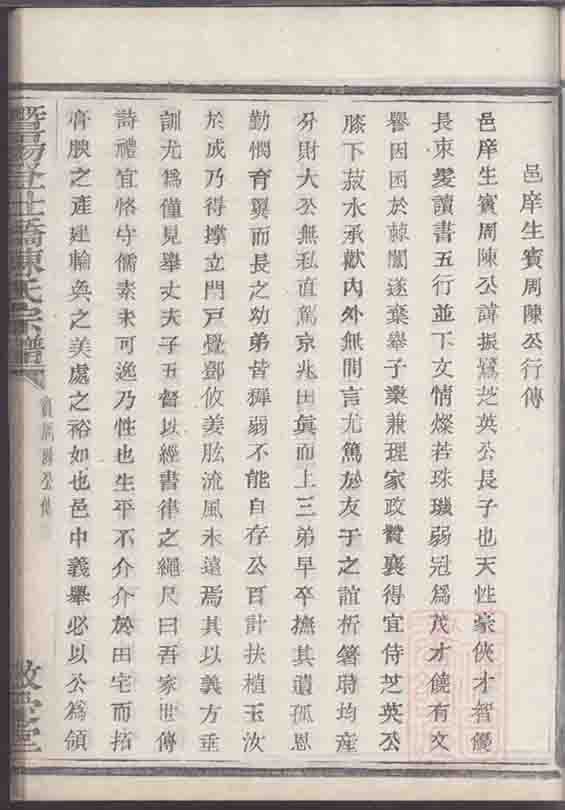 邑庠生賓周陳公行傳
邑庠生賓周陳公諱振鷺芝英公長子也天性豪俠才智優
長束髮讀書五行並下文情燦若珠璣弱冠爲茂才饒有文
譽因困於棘闈遂棄舉子業兼理家政贊襄得宜侍芝英公
膝下菽水承歡內外無間言尤篤於友于之誼析箸時均產
分財大公無私直駕京兆田眞而上三弟早卒撫其遺孤恩
勤憫育翼而長之幼弟皆穉弱不能自存公百計扶植玉汝
於成乃得撐立門戶覺鄧攸姜肱流風未遠焉其以義方垂
訓尤爲僅見舉丈夫子五督以經書律之繩尺曰吾家世傳
詩禮宜恪守儒素未可逸乃性也生平不介介於田宅而拓
膏腴之產建輪奐之美處之裕如也邑中義舉必以公爲領
暨陽 陳氏宗譜
賓周陳公傳